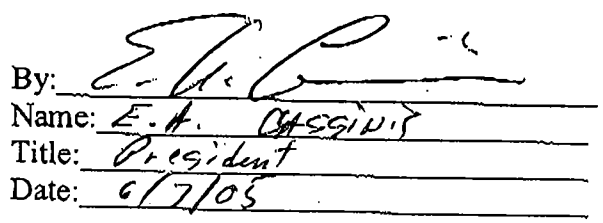 By:
Name: E.A. CASSINIS
Title: President
Date: 6/7/05